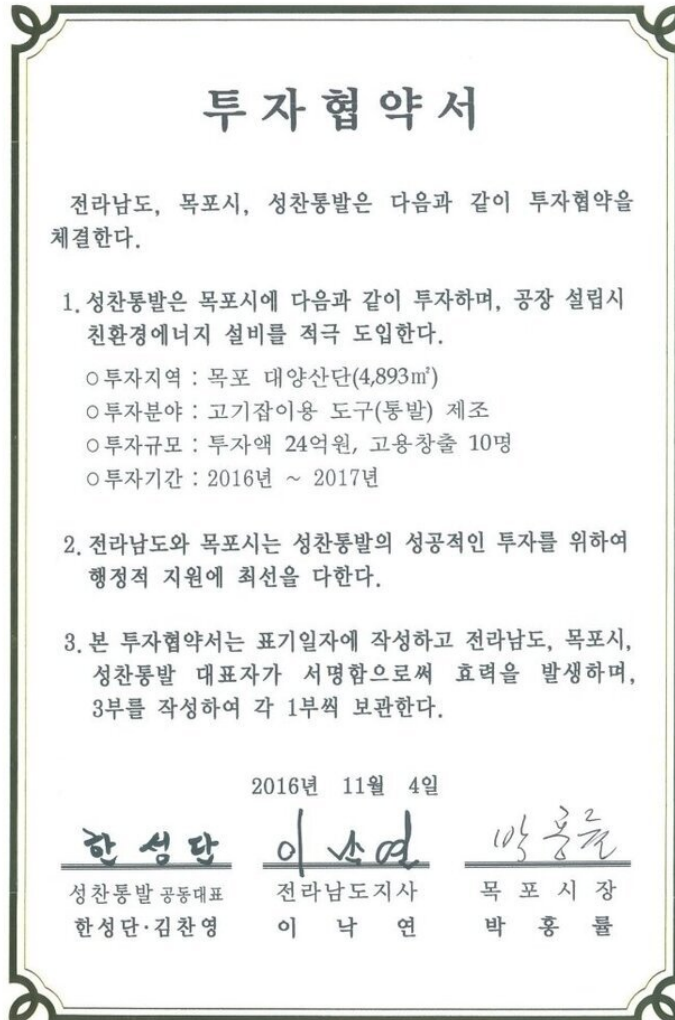 투자협약서
전라남도, 목포시, 성찬통발은 다음과 같이 투자협약을
체결한다.
1. 성찬통발은 목포시에 다음과 같이 투자하며, 공장 설립시
친환경에너지 설비를 적극 도입한다.
○투자지역 : 목포 대양산단(4,893㎡)
○투자분야 : 고기잡이용 도구(통발) 제조
○투자규모 : 투자액 24억원, 고용창출 10명
○투자기간 : 2016년 ~ 2017년
2. 전라남도와 목포시는 성찬통발의 성공적인 투자를 위하여
행정적 지원에 최선을 다한다.
3. 본 투자협약서는 표기일자에 작성하고 전라남도, 목포시,
성찬통발 대표자가 서명함으로써 효력을 발생하며,
3부를 작성하여 각 1부씩 보관한다.
2016년 11월 4일
한성단 이낙연 박홍률
성찬통발 공동대표 전라남도지사 목포시장
한성단·김찬영 이낙연 박홍률